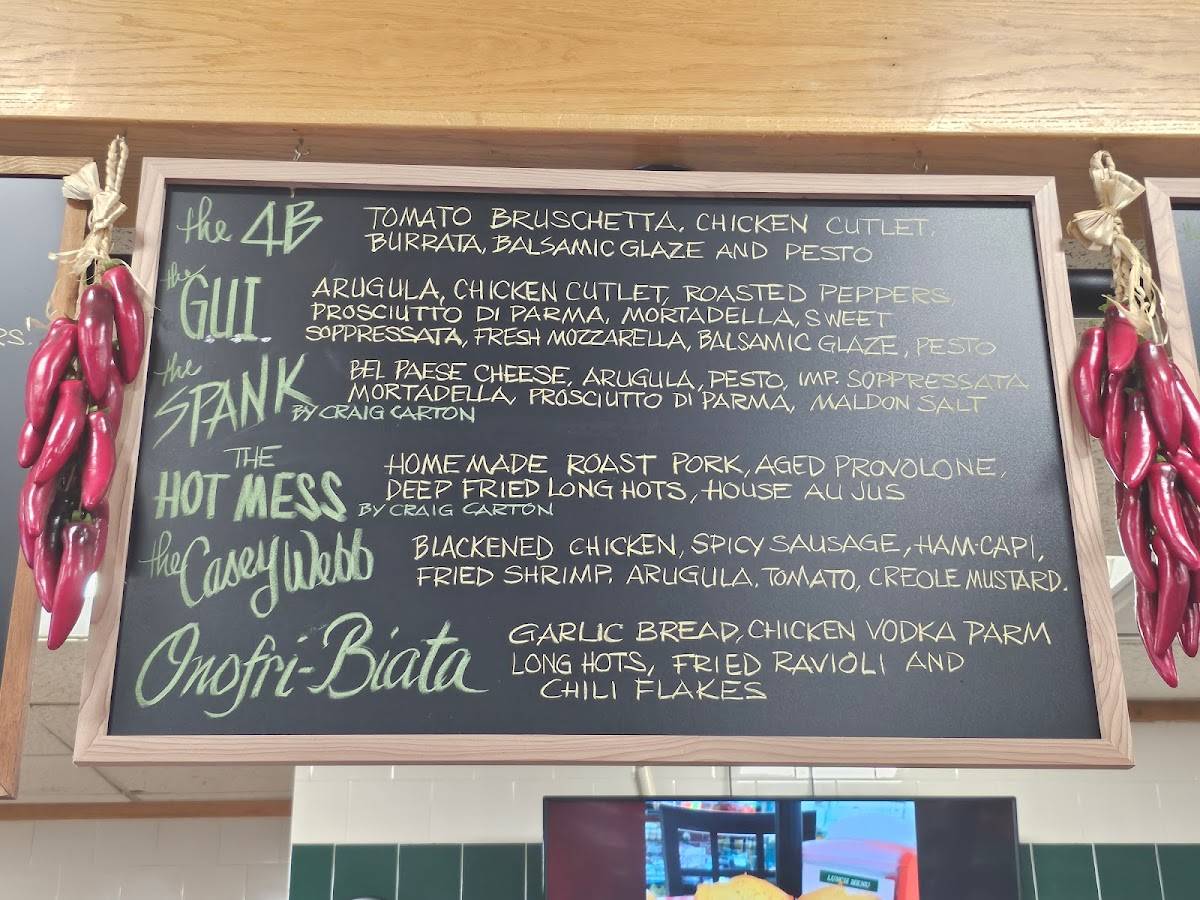 the 4B TOMATO BRUSCHETTA, CHICKEN CUTLET,
BURRATA, BALSAMIC GLAZE AND PESTO
the G.U.I. ARUGULA, CHICKEN CUTLET, ROASTED PEPPERS,
PROSCIUTTO DI PARMA, MORTADELLA, SWEET
SOPPRESSATA, FRESH MOZZARELLA, BALSAMIC GLAZE, PESTO
the SPANK BEL PAESE CHEESE, ARUGULA, PESTO, IMP. SOPPRESSATA
MORTADELLA, PROSCIUTTO DI PARMA, MALDON SALT
BY CRAIG CARTON
THE HOT MESS HOMEMADE ROAST PORK, AGED PROVOLONE,
DEEP FRIED LONG HOTS, HOUSE AU JUS
BY CRAIG CARTON
the Casey Webb BLACKENED CHICKEN, SPICY SAUSAGE, HAM-CAPI,
FRIED SHRIMP, ARUGULA, TOMATO, CREOLE MUSTARD.
Onofri-Biata GARLIC BREAD, CHICKEN VODKA PARM
LONG HOTS, FRIED RAVIOLI AND
CHILI FLAKES
LUNCH MENU